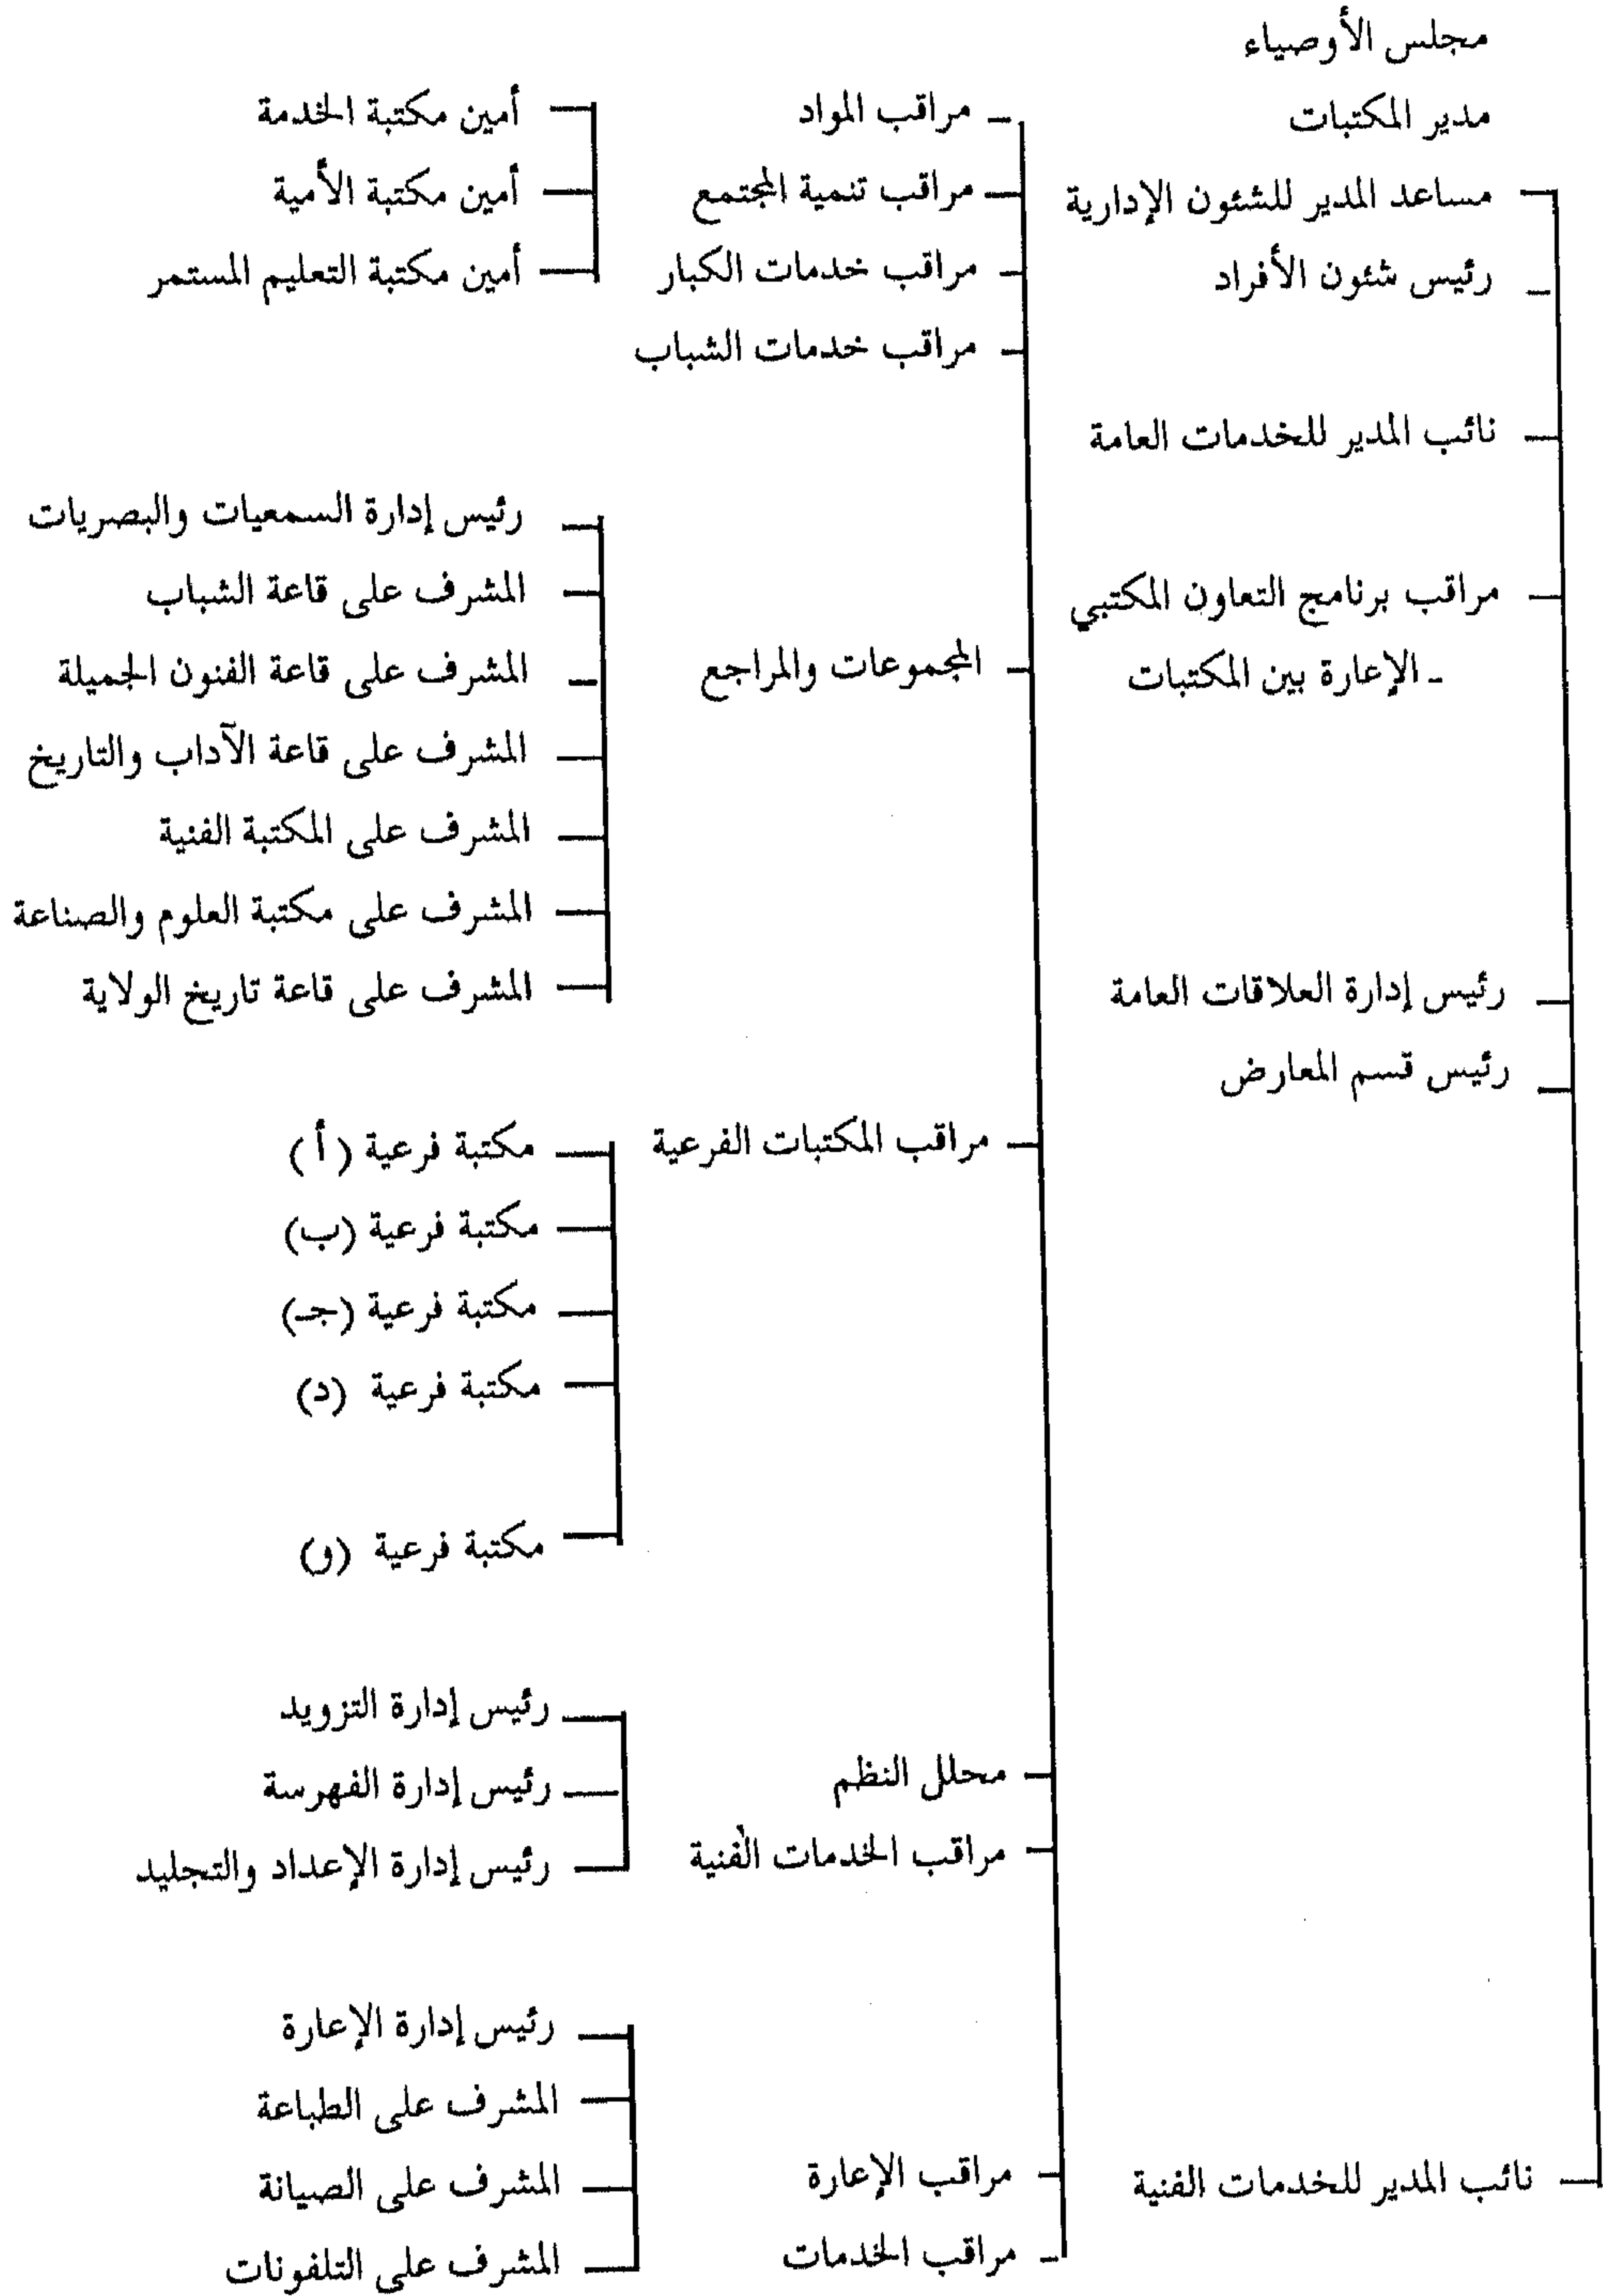 مجلس الأوصياء
مدير المكتبات
مساعد المدير للشئون الإدارية
رئيس شئون الأفراد
نائب المدير للخدمات العامة
مراقب برنامج التعاون المكتبي
- الإعارة بين المكتبات
رئيس إدارة العلاقات العامة
رئيس قسم المعارض
نائب المدير للخدمات الفنية
مراقب المواد
مراقب تنمية المجتمع
مراقب خدمات الكبار
مراقب خدمات الشباب
المجموعات والمراجع
مراقب المكتبات الفرعية
محلل النظم
مراقب الخدمات الفنية
مراقب الإعارة
مراقب الخدمات
أمين مكتبة الخدمة
أمين مكتبة الأمية
أمين مكتبة التعليم المستمر
رئيس إدارة السمعيات والبصريات
المشرف على قاعة الشباب
المشرف على قاعة الفنون الجميلة
المشرف على قاعة الآداب والتاريخ
المشرف على المكتبة الفنية
المشرف على مكتبة العلوم والصناعة
المشرف على قاعة تاريخ الولاية
مكتبة فرعية (أ)
مكتبة فرعية (ب)
مكتبة فرعية (جـ)
مكتبة فرعية (د)
مكتبة فرعية (و)
رئيس إدارة التزويد
رئيس إدارة الفهرسة
رئيس إدارة الإعداد والتجليد
رئيس إدارة الإعارة
المشرف على الطباعة
المشرف على الصيانة
المشرف على التلفونات